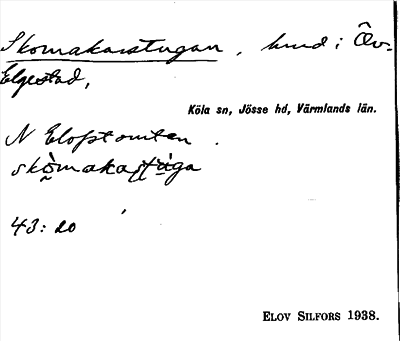 Skomakarstugan, hmd i Öv.
Elgestad,
Köla sn, Jösse hd, Värmlands län.
N Elofstomten.
skòmakastùga
43: 20
ELOV SILFORS 1938.